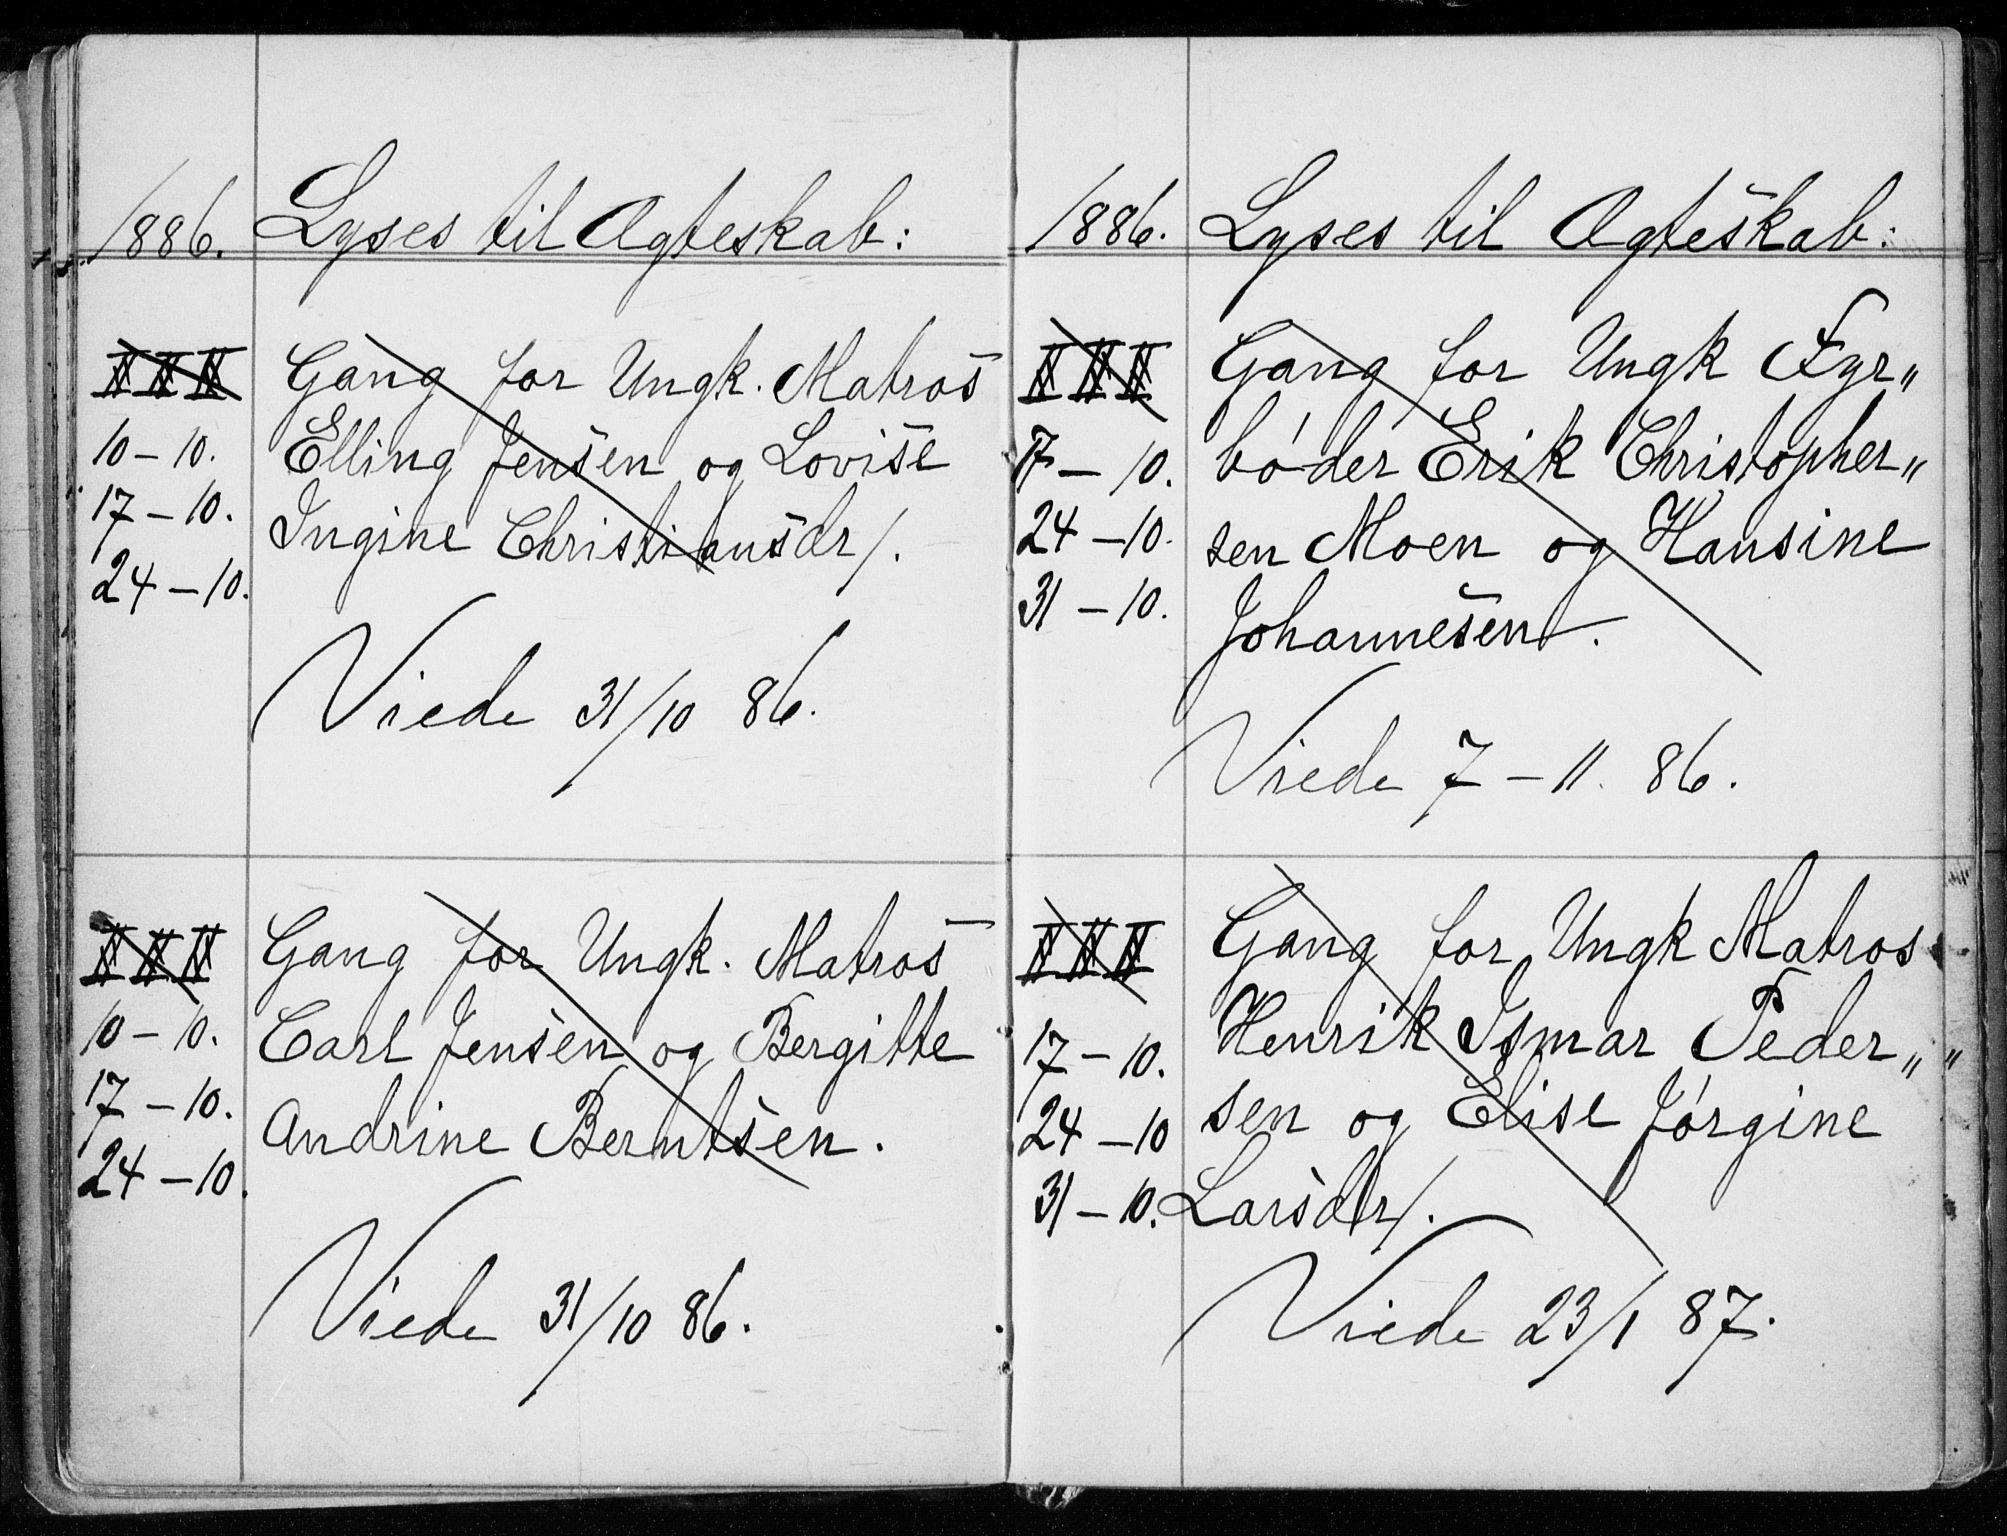 1886. Lyses til Ægteskab:
I II III Gang for Ungk. Matros
10-10. Elling Jensen og Lovise
17-10. Ingine Christiansdr/.
24-10.
Viede 31/10 86.
I II III Gang for Ungk. Matros
10-10. Carl Jensen og Bergitte
17-10. Andrine Berntsen.
24-10.
Viede 31/10 86.
1886. Lyses til Ægteskab:
I II III Gang for Ungk Fyr„
17-10. bøder Erik Christopher„
24-10. sen Moen og Hansine
31-10. Johannesen.
Viede 7-11. 86.
I II III Gang for Ungk Matros
17-10. Henrik Ismar Peder„„
24-10 sen og Elise Jørgine
31-10. Larsdr/.
Viede 23/1 87.